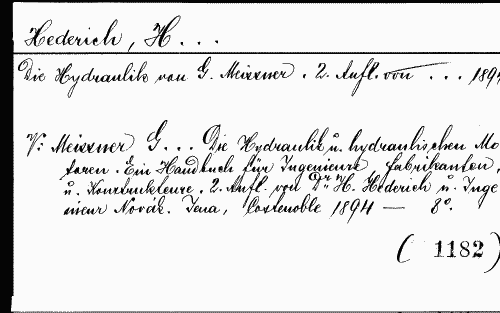 Hederich, H...
Die Hydraulik von G. Meissner. 2. Aufl. von ... 1894
V: Meissner G... Die Hydraulik u. hydraulischen Mo
toren. Ein Handbuch für Ingenieure, Fabrikanten,
u. Konstrukteure. 2. Aufl. von Dr. H. Hederich u. Inge
nieur Novák. Jena, Costenoble 1894 — 8°.
( 1182 )